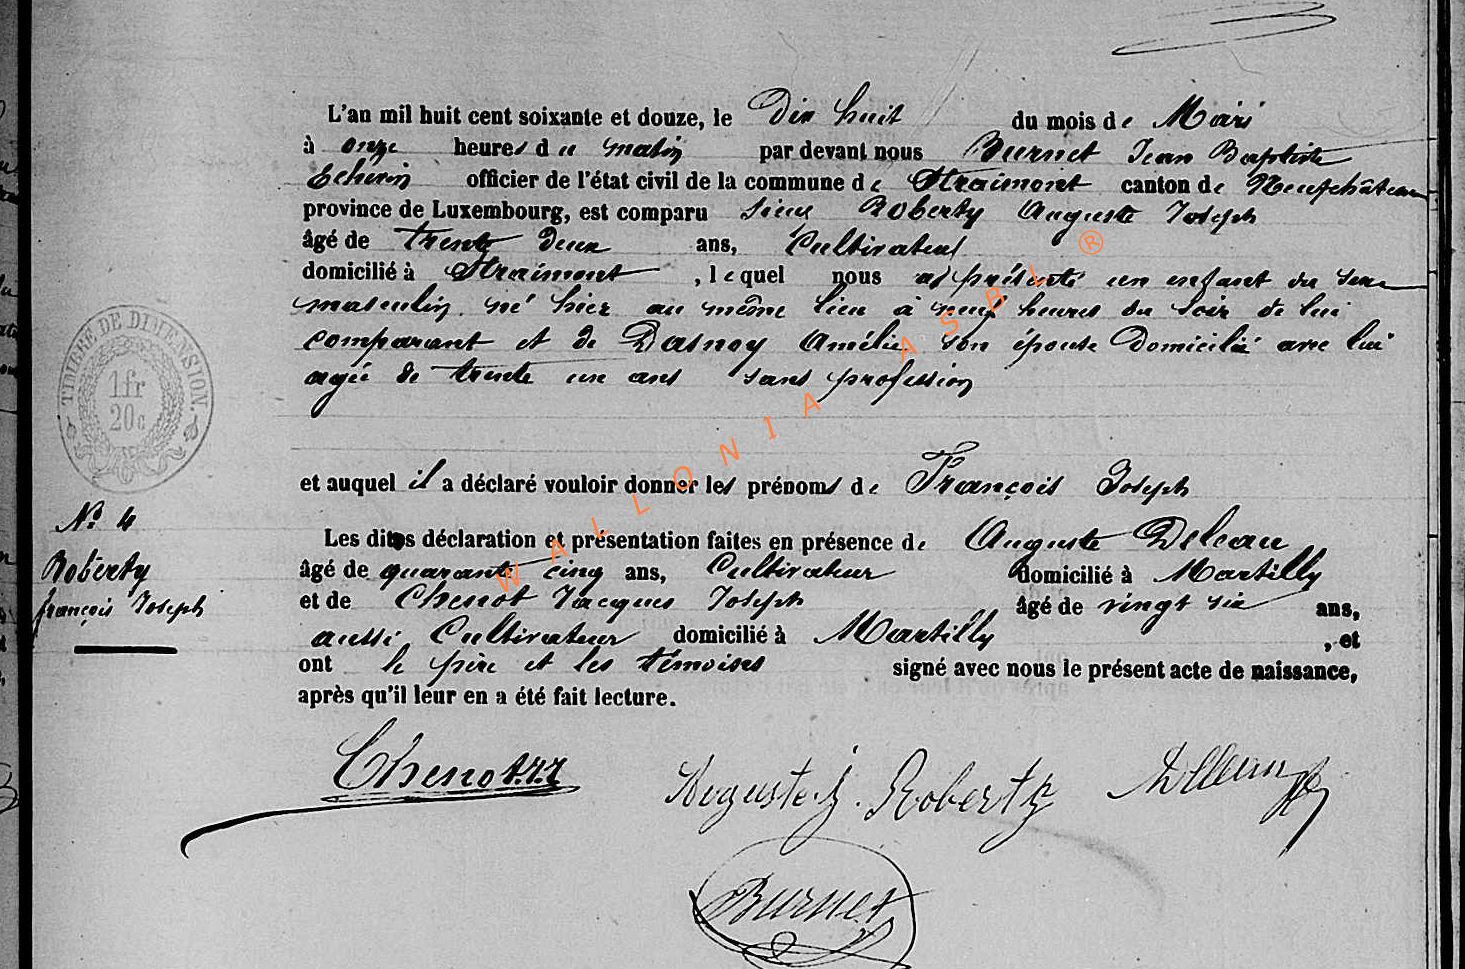 L'an mil huit cent soixante et douze, le Dix huit du mois de Mars
à onze heures du matin par devant nous Burnet Jean Baptiste
Echevin officier de l'état civil de la commune de Straimont canton de Neufchâteau
province de Luxembourg, est comparu sieur Roberty Auguste Joseph
âgé de trente deux ans, Cultivateur
domicilié à Straimont, lequel nous a présenté un enfant du sexe
masculin né hier au même lieu à neuf heures du soir de lui
comparant et de Dasnoy Amélie son épouse Domicilié avec lui
agée de trente un ans sans profession
et auquel il a déclaré vouloir donner les prénoms de François Joseph
TIMBRE DE DIMENSION.
1fr
20c
Nº 4
Roberty
françois Joseph
Les dites déclaration et présentation faites en présence de Auguste Deleau
âgé de quarante cinq ans, Cultivateur domicilié à Martilly
et de Chenot Jacques Joseph âgé de vingt six ans,
aussi Cultivateur domicilié à Martilly, et
ont le père et les témoins signé avec nous le présent acte de naissance,
après qu'il leur en a été fait lecture.
Chenot J.J
Auguste.j. Roberty
Burnet
WALLONIA ASBL ®